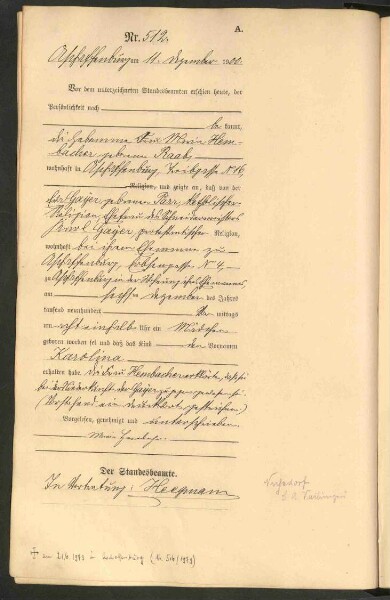 A.
Nr. 512.
Aschaffenburg am 11. Dezember 1900.
Vor dem unterzeichneten Standesbeamten erschien heute, der
Persönlichkeit nach
be kannt,
die Hebamme Maria Hem-
bacher geborene Raab,
wohnhaft in Aschaffenburg, N° 16,
Religion, und zeigte an, daß von der
Gayer, geborenen Katholischer
Religion, Ehefrau des Schneidermeisters
Karl Gayer, protestantischer Religion,
wohnhaft bei ihrem Ehemanne zu
Aschaffenburg, N° 4,
zu Aschaffenburg in der Wohnung ihres Ehemannes,
am sechsten Dezember des Jahres
tausend neunhundert Vor mittags
um acht einhalb Uhr ein Mädchen
geboren worden sei und daß das Kind den Vornamen
Karolina
erhalten habe. Die Hembacher erklärt, daß sie
bei der Niederkunft der Gayer zugegen gewesen sei.
(Vorstehend ein Druckwort gestrichen)
Vorgelesen, genehmigt und unterschrieben
Maria Hembacher
Der Standesbeamte.
In Vertretung:
† am 1979 in Aschaffenburg (Nr. /1979)